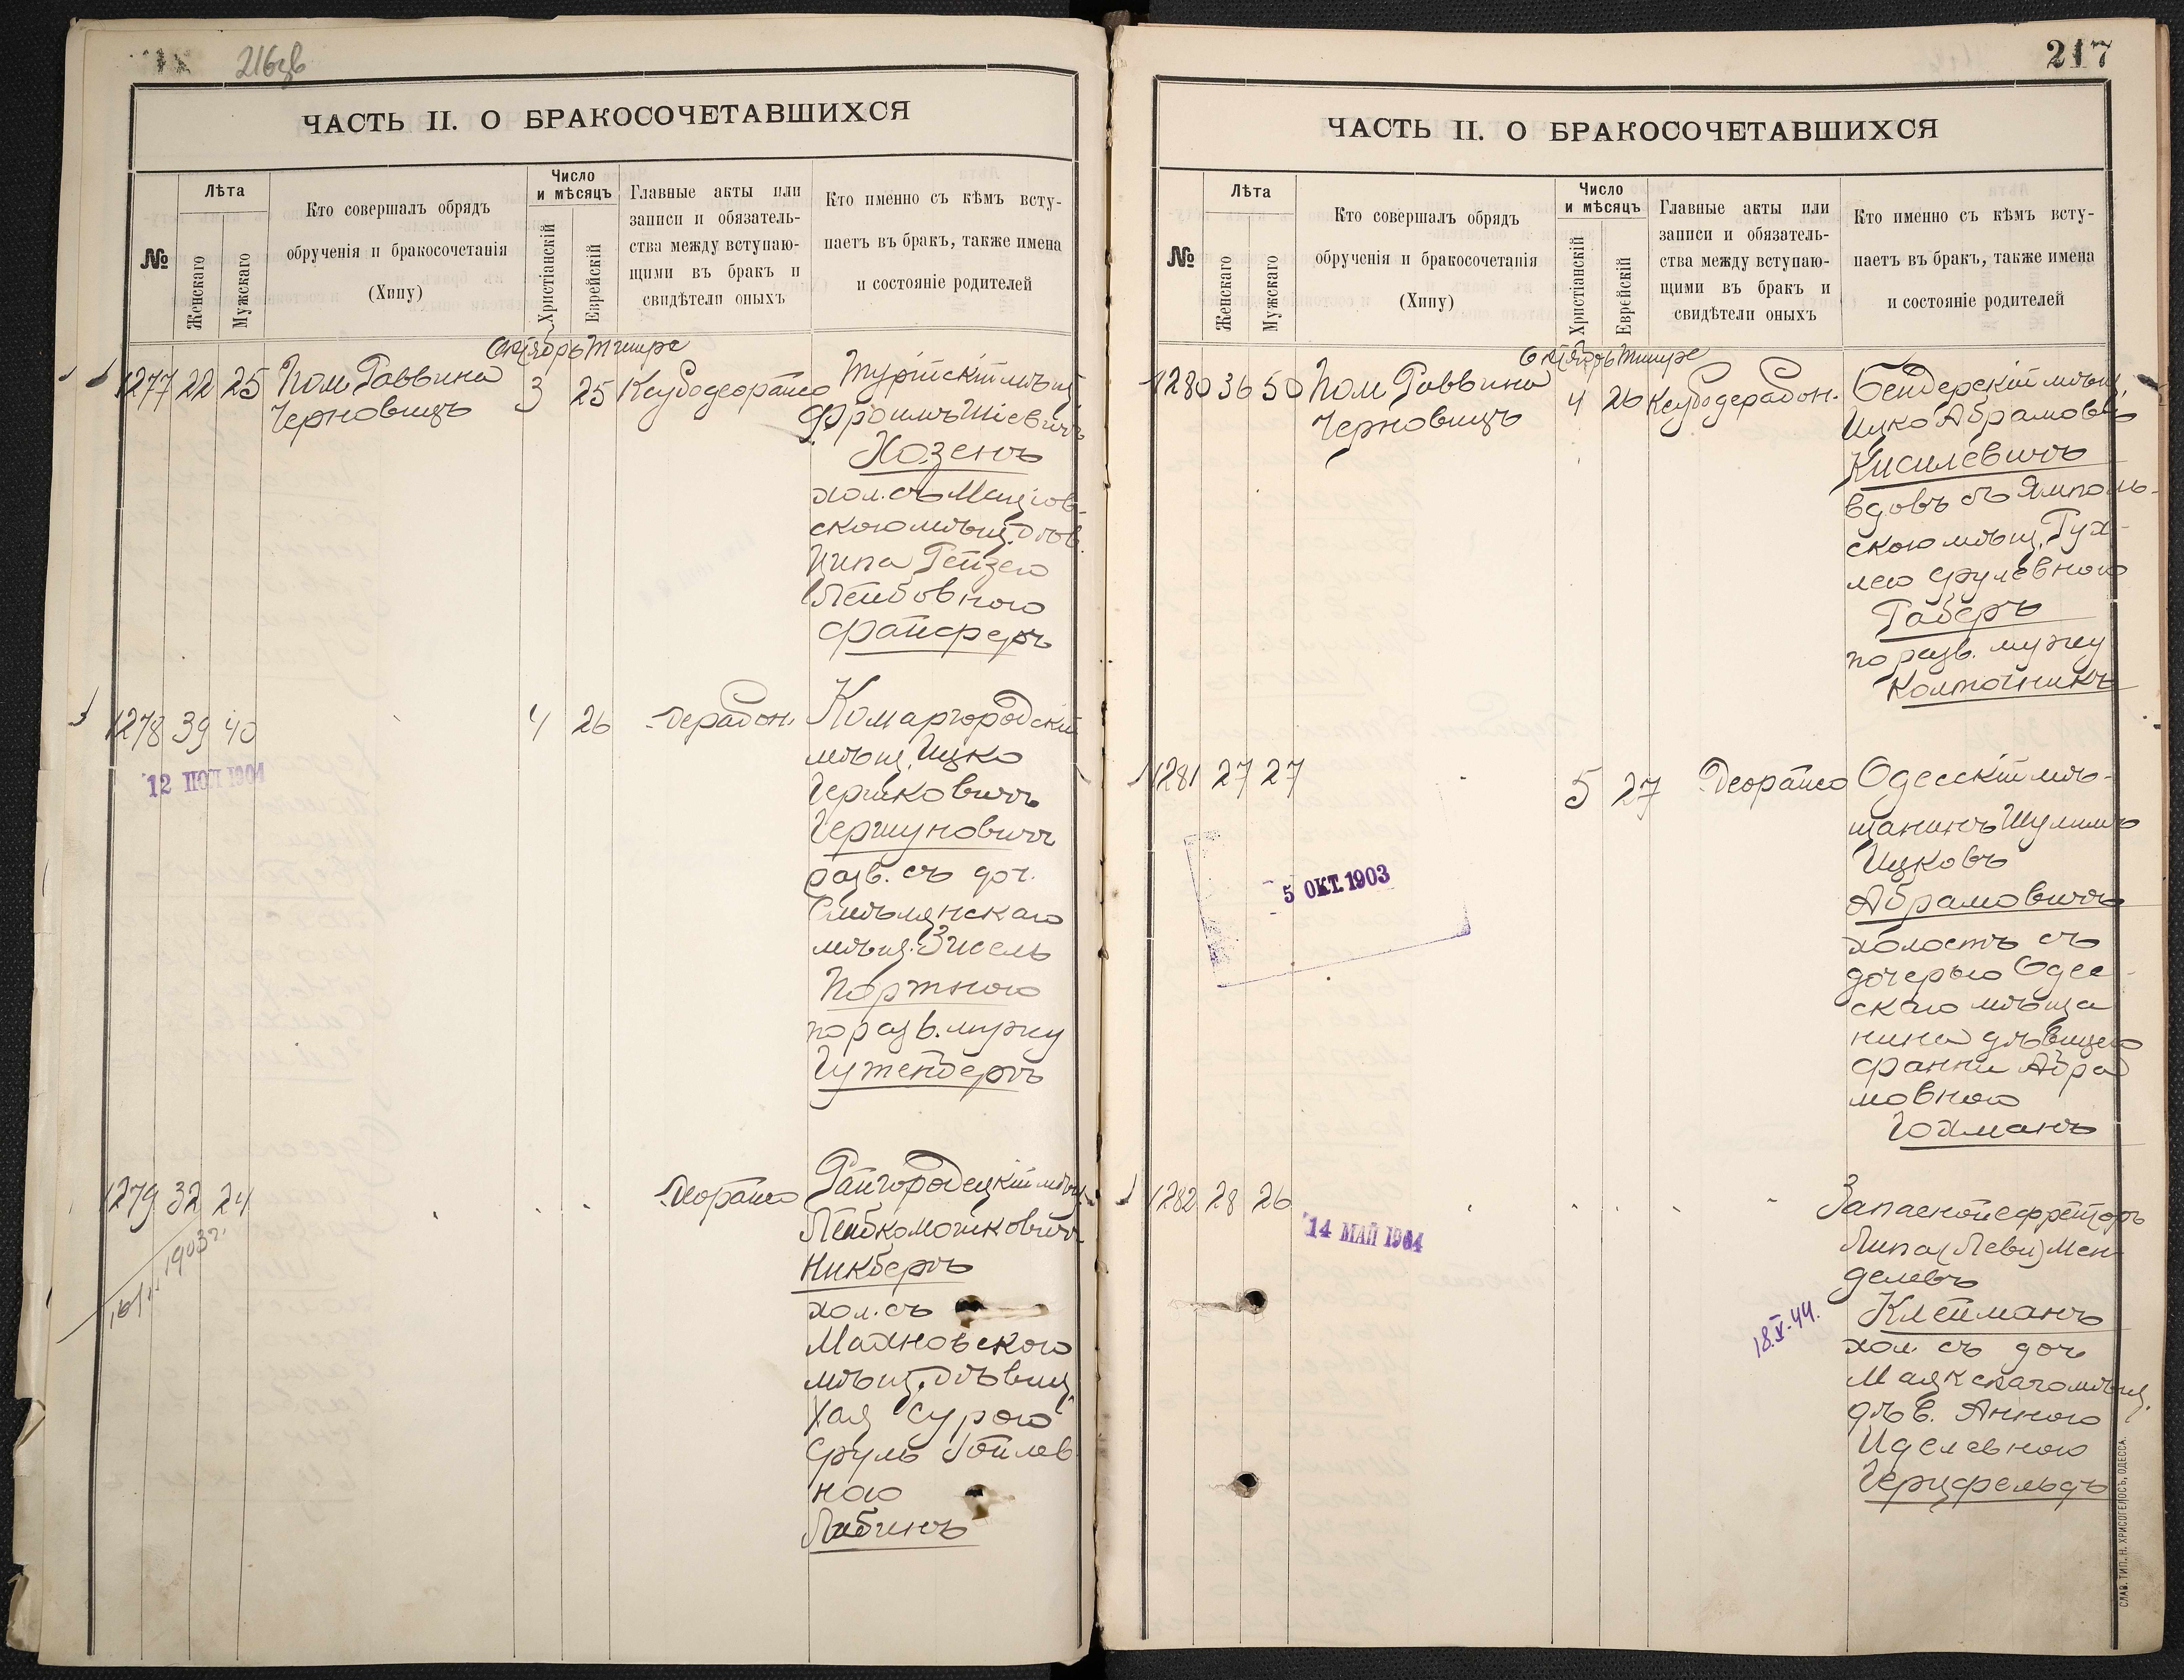 216об
ЧАСТЬ II. О БРАКОСОЧЕТАВШИХСЯ
№
Лѣта
Женскаго
Мужскаго
Кто совершалъ обрядъ
обрученія и бракосочетанія
(Хипу)
Число
и мѣсяцъ
Христіанскій
Еврейскій
Главные акты или
записи и обязатель-
ства между вступаю-
щими въ бракъ и
свидѣтели оныхъ
Кто именно съ кѣмъ всту-
паетъ въ бракъ, также имена
и состояніе родителей
Октябрь Тишре
1277 22 25 Пом. Раввина
Черновицъ
3 25
Турійскій мѣщ.
Фроимъ Шіевичъ
Хозенъ
хол. съ Маціов-
скою мѣщ. дѣв.
Ципа Рейзею
Лейбовною
Файферъ
1278 39 40
12 ІЮЛ 1904
4 26
Дерабон.
Комаргородскій
мѣщ. Ицко
Гершковичъ
Гершуновичъ
разв. съ доч.
Смѣлянскаго
мѣщ. Зисель
Портною
по разв. мужу
Гутенберъ
1279 32 24
16/II 1903 г.
Деорайсо
Райгородецкій мѣщ.
Лейбко Мошковичъ
Никберъ
хол. съ
Махновскою
мѣщ. дѣвиц.
Хая Сурою
Сруль Іойлев-
ною
Либинъ
217
ЧАСТЬ II. О БРАКОСОЧЕТАВШИХСЯ
№
Лѣта
Женскаго
Мужскаго
Кто совершалъ обрядъ
обрученія и бракосочетанія
(Хипу)
Число
и мѣсяцъ
Христіанскій
Еврейскій
Главные акты или
записи и обязатель-
ства между вступаю-
щими въ бракъ и
свидѣтели оныхъ
Кто именно съ кѣмъ всту-
паетъ въ бракъ, также имена
и состояніе родителей
Октябрь Тишре
1280 36 50 Пом. Раввина
Черновицъ
4 26
Ксубодерабон.
Бендерскій мѣщ.
Ицко Абрамовъ
Кисилевичъ
вдовъ съ Ямполь-
скою мѣщ. Рух-
лею Срулевною
Таберъ
по разв. мужу
Колтойникъ
1281 27 27
5 ОКТ. 1903
5 27
Деорайсо
Одесскій мѣ-
щанинъ Шулимъ
Ицковъ
Абрамовичъ
холостъ съ
дочерью Одес-
скаго мѣща
нина дѣвицею
Фанни Абра
мовною
Гохманъ
1282 28 26
14 МАЙ 1904
18.V.44.
Запасной ефрейторъ
Липа (Леви) Мен-
делевъ
Клейманъ
хол. съ доч.
Маякскаго мѣщ.
дѣв. Анною
Иделевною
Герцфельдъ
СЛАВ. ТИП. Н. ХРИСОГЕЛОСЪ, ОДЕССА.